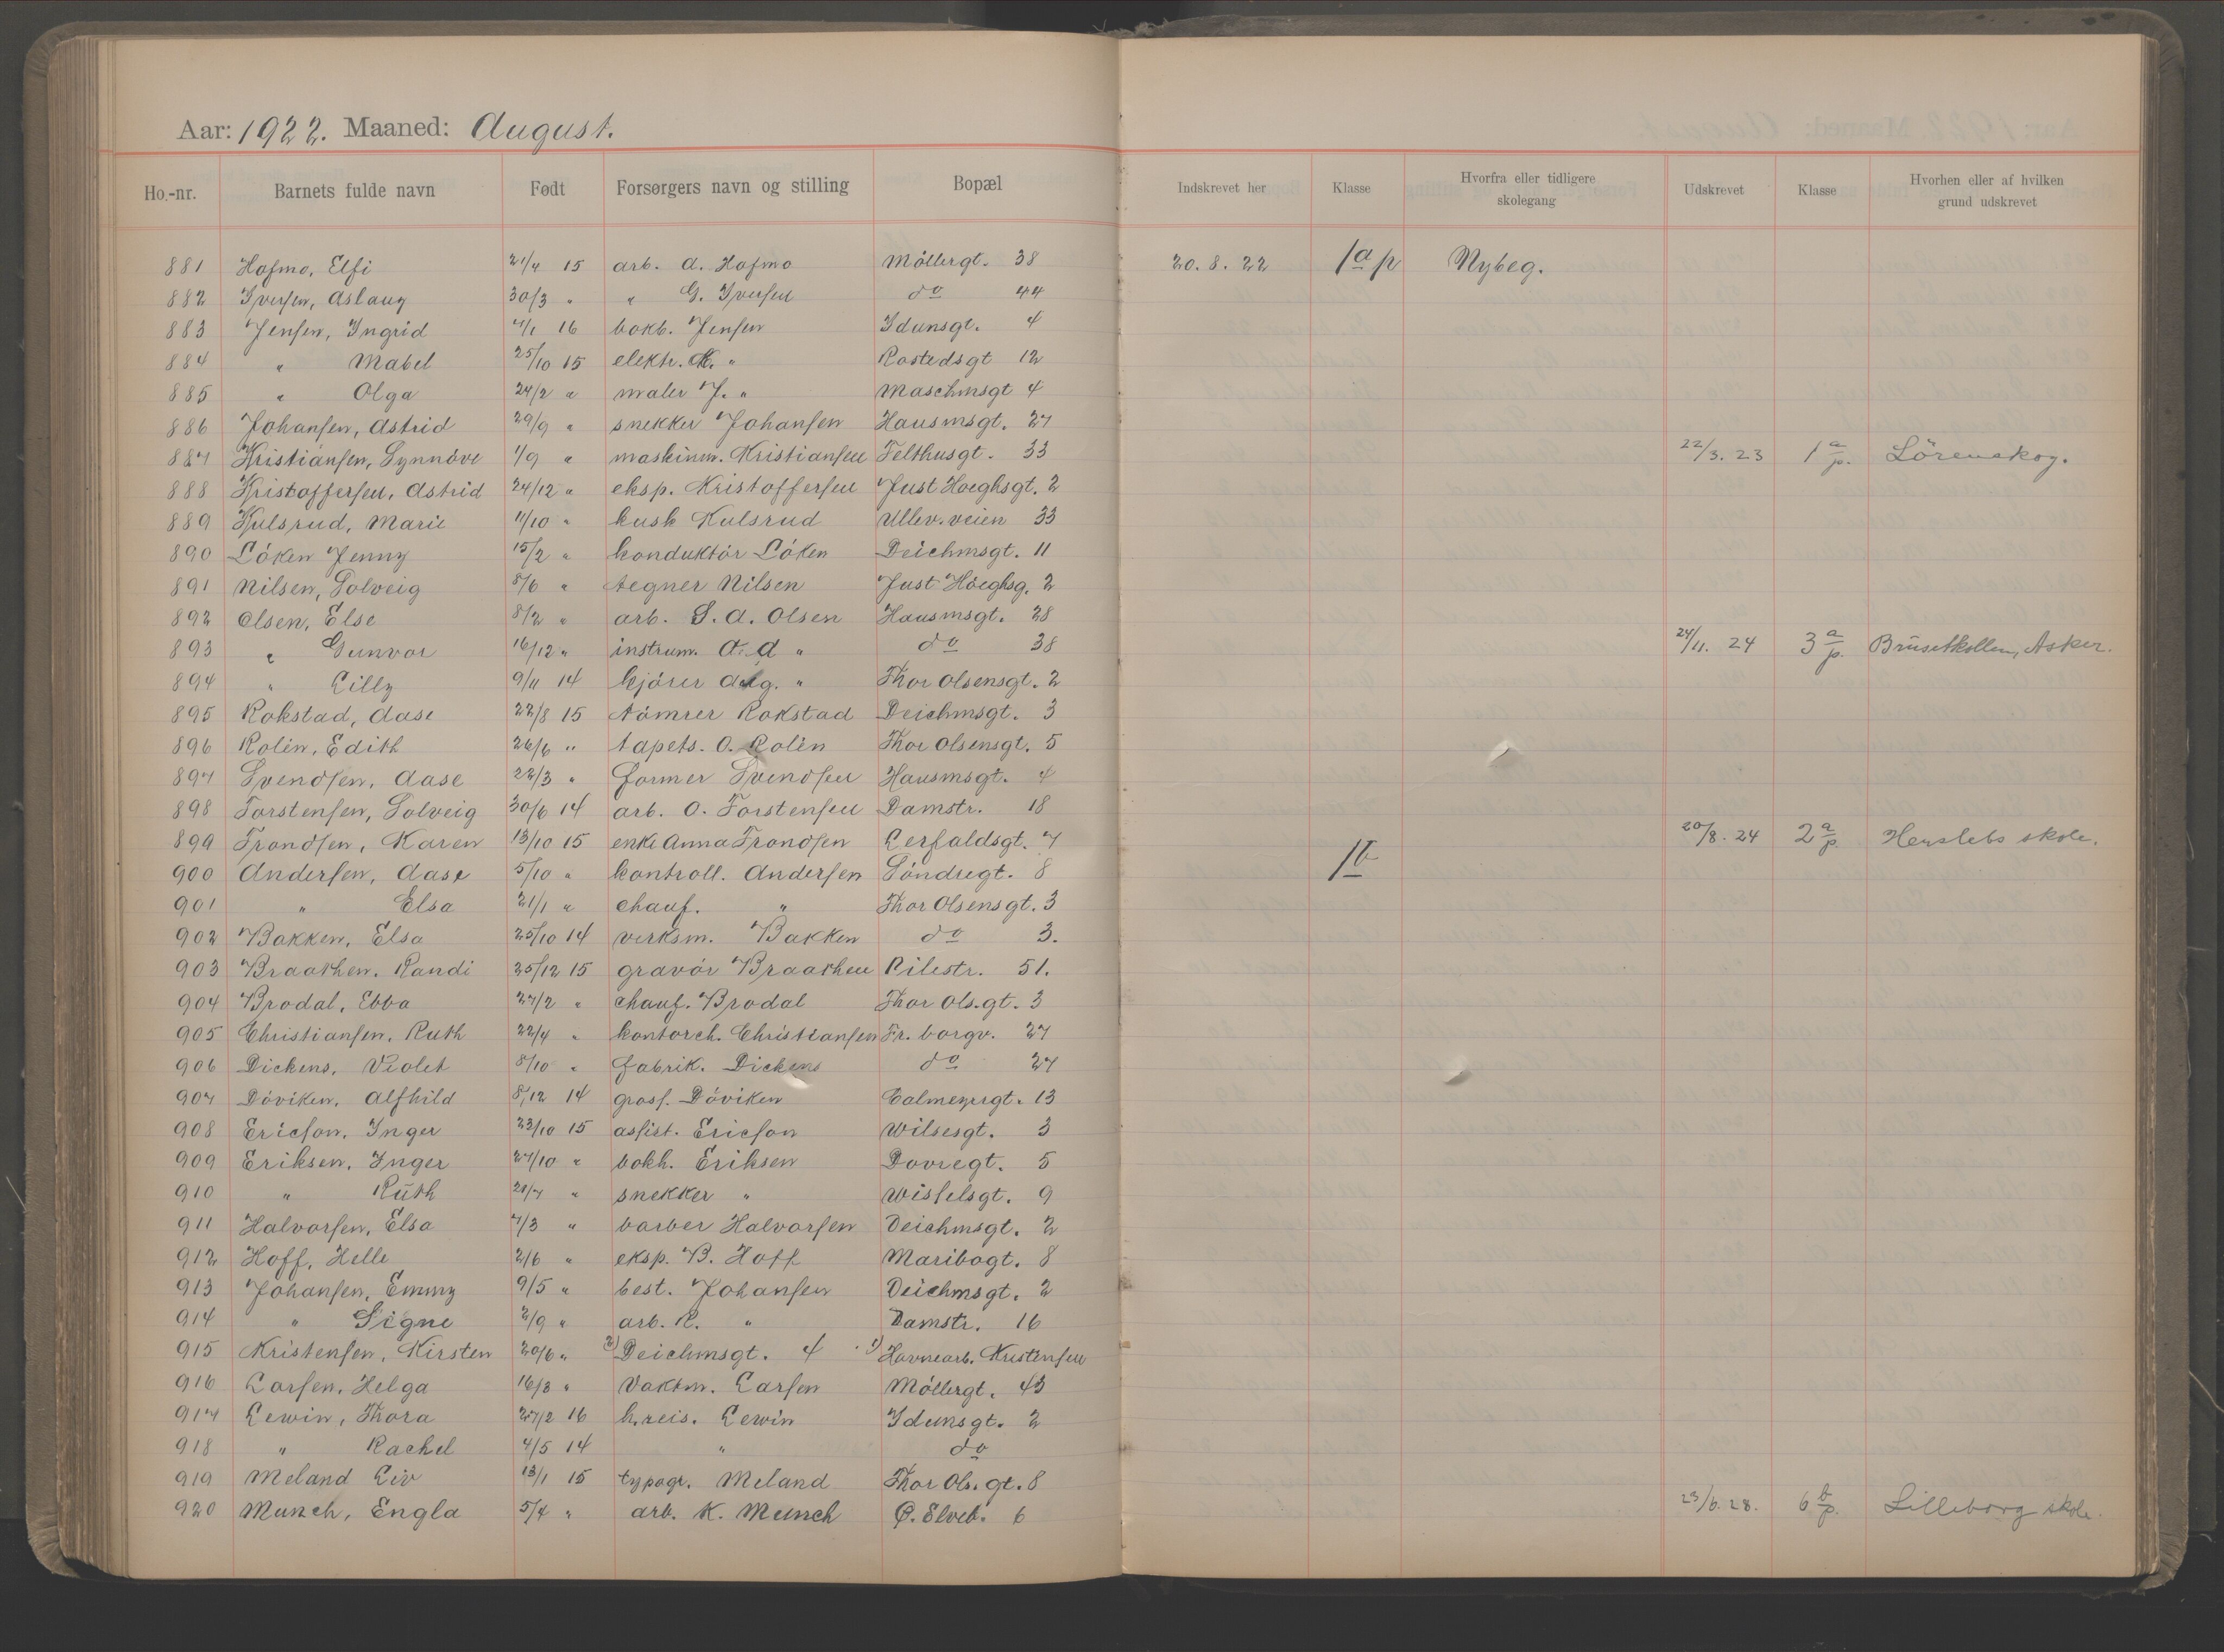 Aar: 1922. Maaned: August.
Ho.-nr. Barnets fulde navn Født Forsørgers navn og stilling Bopæl Indskrevet her Klasse Hvorfra eller tidligere skolegang Udskrevet Klasse Hvorhen eller af hvilken grund udskrevet
881 Hofmo, Elfi 21/4 15 arb. A. Hofmo Möllergt. 38 20.8.22 1a p Nybeg.
882 Iversen, Aslaug 30/3 " " G. Iversen do 44
883 Jensen, Ingrid /1 16 bokb. Jensen Idunsgt. 4
884 " Mabel 25/10 15 elektr. " Rostedsgt 12
885 " Olga 24/2 " maler J. " Maschmsgt 4
886 Johansen, Astrid 29/9 " snekker Johansen Hausmsgt. 27
887 Kristiansen, Synnöve 1/9 " maskinm. Kristiansen Felthusgt. 33 22/3. 23 1 a/p. Lörenskog.
888 Kristoffersen, Astrid 24/12 " eksp. Kristoffersen Just Hoeghsgt. 2
889 Kulsrud, Marie 11/10 " kusk Kulsrud Ullev. veien 33
890 Löken Jenny 15/2 " konduktör Löken Deichmsgt. 11
891 Nilsen, Solveig 8/6 " tegner Nilsen Just Höeghsg. 2
892 Olsen, Else 8/2 " arb. S. A. Olsen Hausmsgt. 28
893 " Gunvor 16/12 " instrum. A. A " do 38 24/11. 24 3 a/p. Brusetkollen, Asker.
894 " Lilly 9/11 14 kjörer " Thor Olsensgt. 2
895 Rokstad, Aase 22/8 15 tömrer Rokstad Deichmsgt. 3
896 Rolin, Edith 26/6 " tapets. O. Rolin Thor Olsensgt. 5
897 Svendsen, Aase 22/3 " former Svendsen Hausmsgt. 4
898 Torstensen, Solveig 30/6 14 arb. O. Torstensen Damstr. 18
899 Trondsen, Karen 13/10 15 enke Anna Trondsen Lerfaldsgt. 7 20/8. 24 2 a/p. Herslebs skole.
900 Andersen, Aase 5/10 " kontroll. Andersen Söndregt. 8 1b
901 " Elsa 21/1 " chauf. " Thor Olsensgt. 3
902 Bakken, Elsa 25/10 14 verksm. Bakken do 3.
903 Braathen, Randi 25/12 15 gravör Braathen Pilestr. 51.
904 Brodal, Ebba 27/2 " chauf. Brodal Thor Ols.gt. 3
905 Christiansen, Ruth 22/4 " kontorch. Christiansen Fr. borgv. 27
906 Dickens, Violet 8/10 " fabrik. Dickens do 27
907 Döviken, Alfhild 8/12 14 gross. Döviken Calmeyergt. 13
908 Ericson, Inger 23/10 15 assist. Ericson Wilsesgt. 3
909 Eriksen, Inger 27/10 " bokh. Eriksen Dovregt. 5
910 " Ruth 21/7 " snekker " Wisselsgt. 9
911 Halvorsen, Elsa 7/3 " barber Halvorsen Deichmsgt. 2
912 Hoff, Helle 2/6 " eksp. B. Hoff Maribogt. 8
913 Johansen, Emmy 9/5 " best. Johansen Deichmsgt. 2
914 " Signe 2/9 " arb. R. " Damstr. 16
915 Kristensen, Kirsten 20/6 " 2) Deichmsgt. 4 1) Havnearb. Kristensen
916 Larsen, Helga 16/8 " Vaktm. Larsen Möllergt. 43
917 Lewin, Thora 27/2 16 h.reis. Lewin Idunsgt. 2
918 " Rachel 4/5 14 " do
919 Meland Liv 13/1 15 typogr. Meland Thor Ols.gt. 8
920 Munch, Engla 5/4 " arb. K. Munch Ö. Elveb. 6 23/6. 28. 6 b/p. Lilleborg skole.